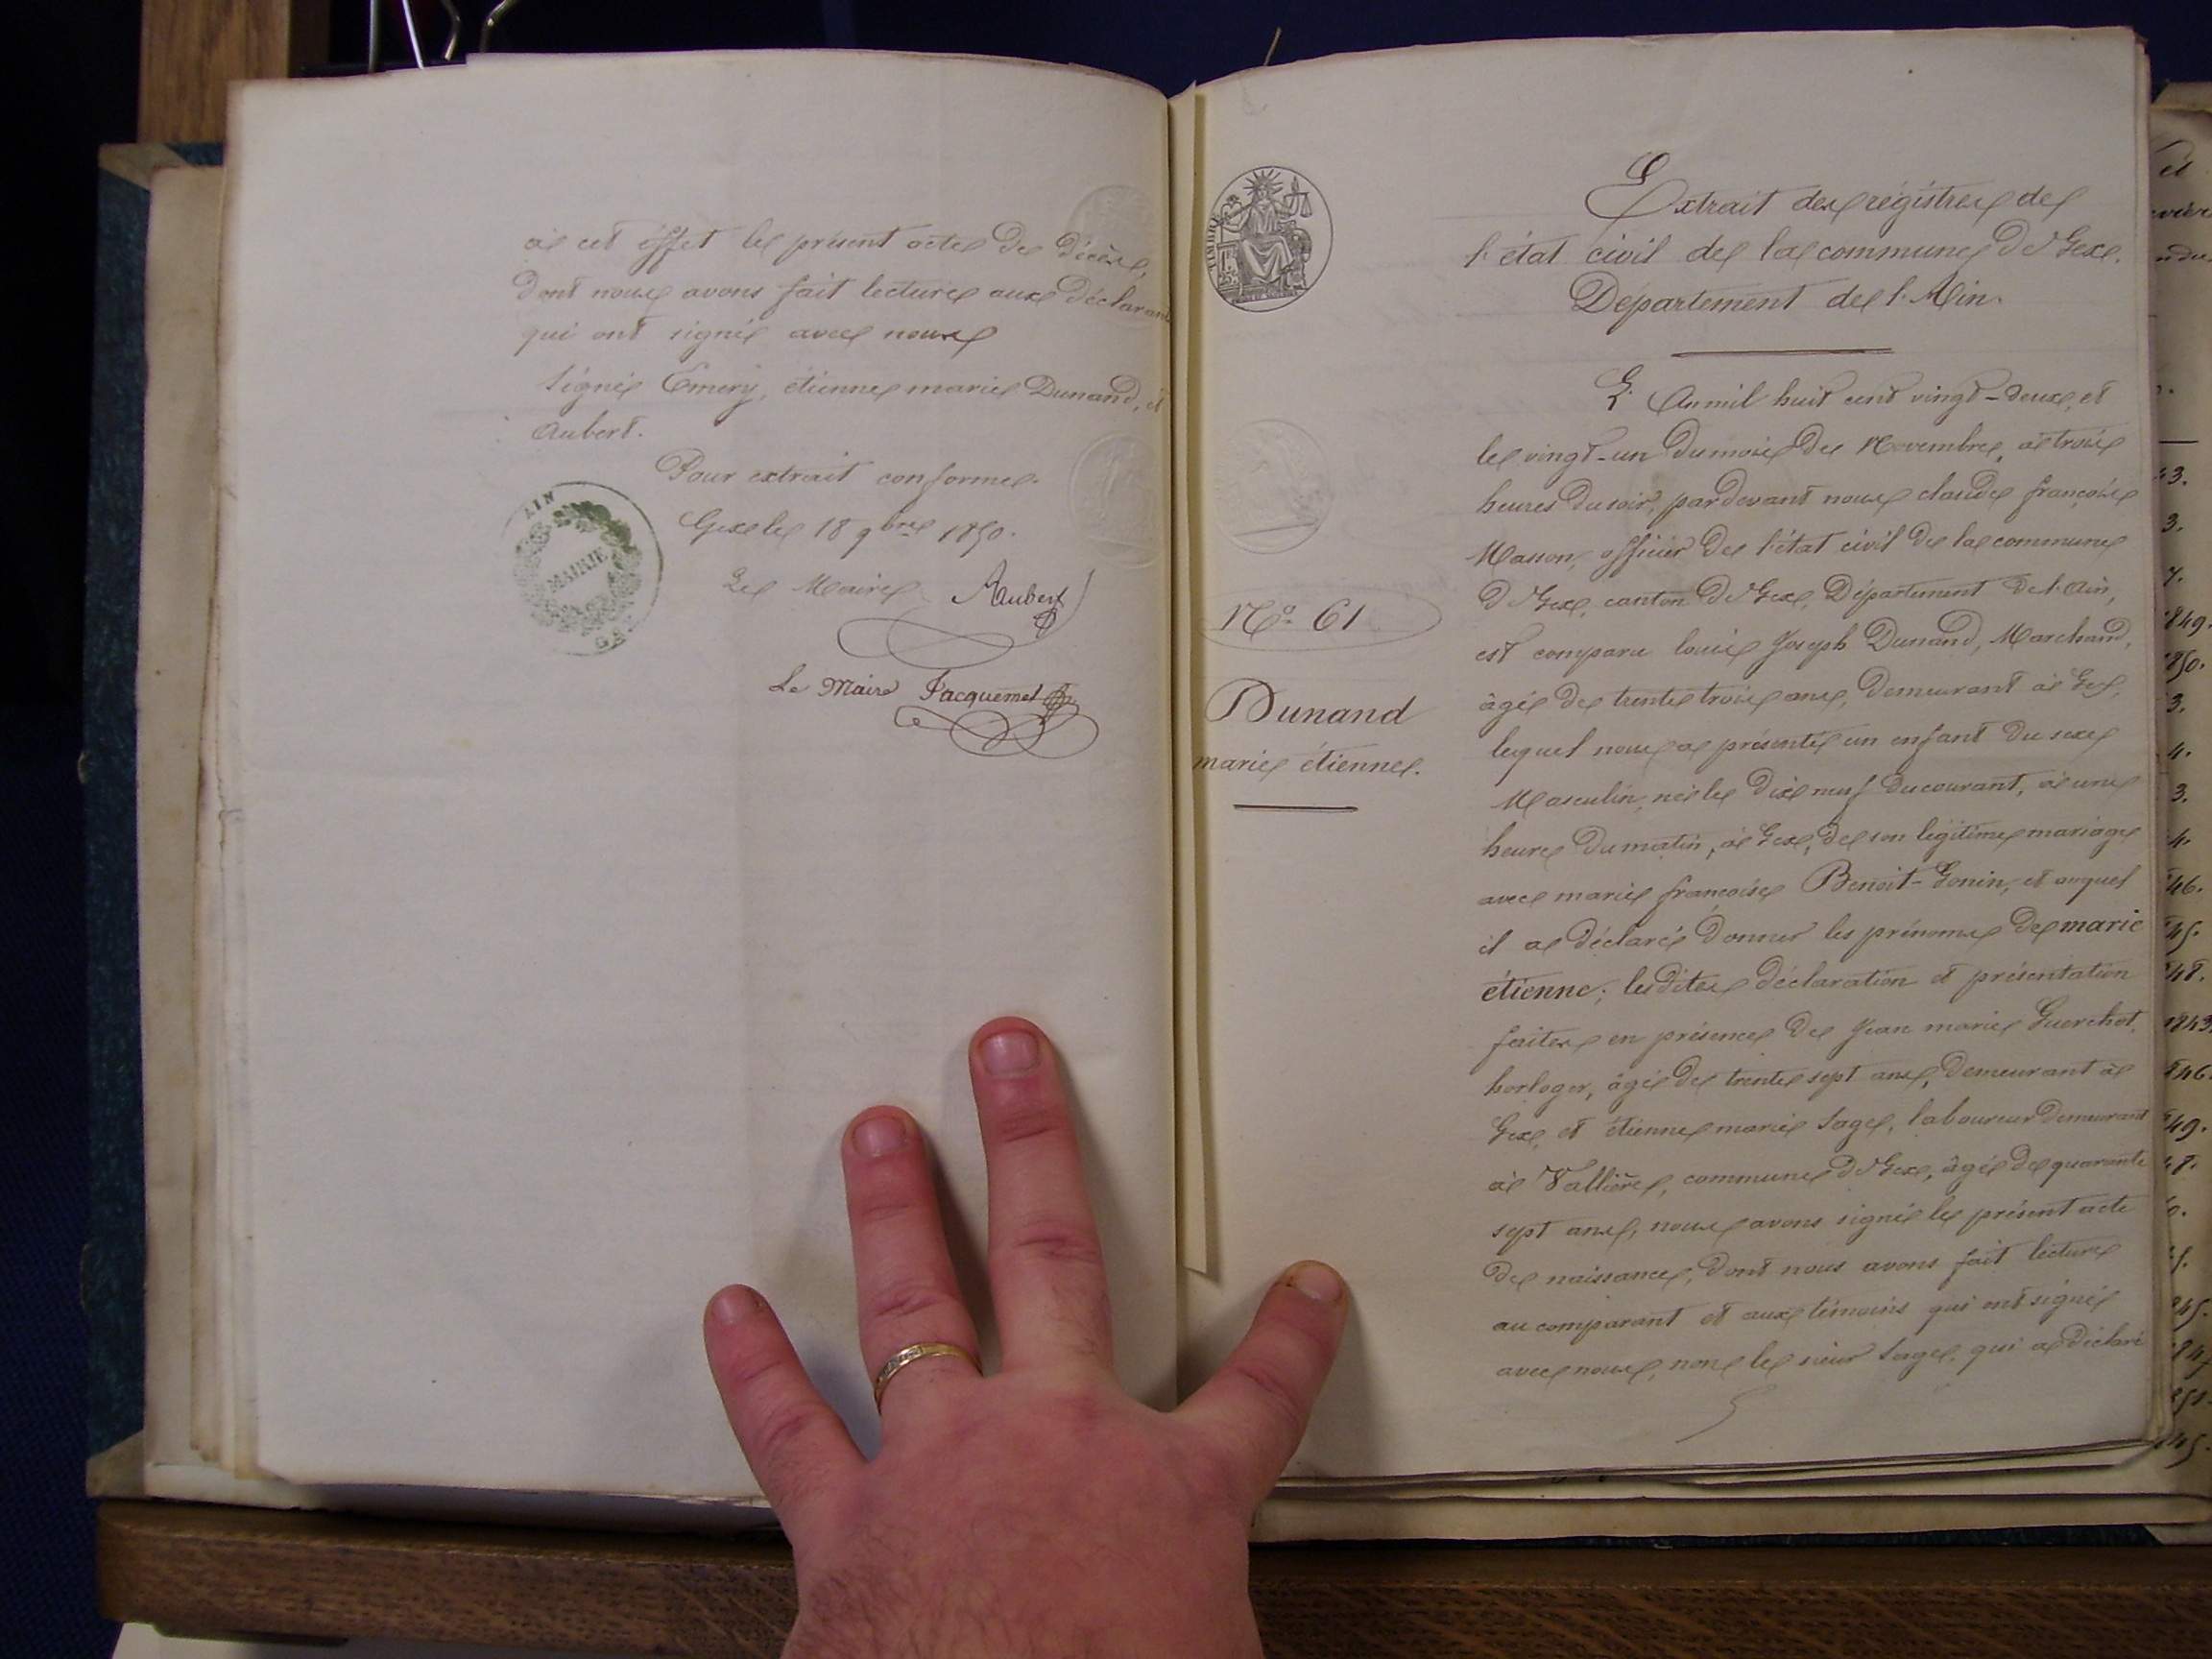 à cet éffet le présent acte de décès,
dont nous avons fait lecture aux déclarants
qui ont signé avec nous
Signé Emery, étienne marie Dunand, et
Aubert.
Pour extrait conforme.
Gex le 18 9bre 1850.
Le Maire Aubert
Le Maire Jacquemet
AIN
MAIRIE
TIMBRE
Extrait des régistres de
l'état civil de la commune de Gex.
Département de l'Ain.
N° 61
Dunand
marie étienne.
L'An mil huit cent vingt-deux, et
le vingt-un du mois de Novembre, à trois
heures du soir, pardevant nous claude françois
Masson, officier de l'état civil de la commune
de Gex, canton de Gex, Département de l'Ain,
est comparu louis Joseph Dunand, Marchand,
âgé de trente trois ans, demeurant à Gex,
lequel nous a présenté un enfant du sexe
Masculin, né le dix neuf du courant, à une
heure du matin, à Gex, de son légitime mariage
avec marie françoise Benoit-Gonin, et auquel
il a déclaré donner les prénoms de marie
étienne; les dites déclaration et présentation
faites en présence de Jean marie Guerchot,
horloger, âgé de trente sept ans, demeurant à
Gex, et étienne marie Sage, laboureur demeurant
à Vallière, commune de Gex, âgé de quarante
sept ans, nous avons signé le présent acte
de naissance, dont nous avons fait lecture
au comparant et aux témoins qui ont signé
avec nous, non le sieur Sage, qui a déclaré
43.
3.
7.
1849.
1850.
3.
4.
3.
4.
46.
45.
48.
1843.
846.
49.